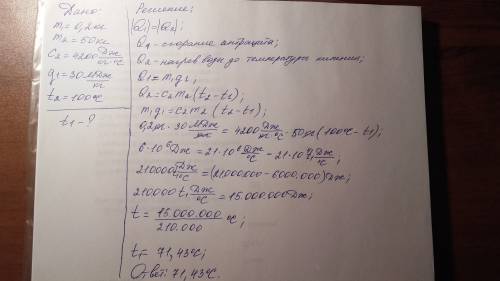 Дано:
m₁ = 0,2кг
m₂ = 50кг
c₂ = 4200 Дж/кг·°C
q₁ = 30 МДж/кг
t₂ = 100°C
t₁ - ?
Решение:
|Q₁| = |Q₂|;
Q₁ - сгорание антрацита;
Q₂ - нагрев воды до температуры кипения;
Q₁ = m₁q₁;
Q₂ = c₂m₂(t₂-t₁);
m₁q₁ = c₂m₂(t₂-t₁);
0,2кг · 30 МДж/кг = 4200 Дж/кг·°C · 50кг (100°C - t₁);
6·10⁶ Дж = 21·10⁶ Дж/°C - 21·10⁴ t₁ Дж/°C;
210000 t₁ Дж/°C = (21000000 - 6000.000) Дж;
210000 t₁ Дж/°C = 15.000.000 Дж;
t = 15.000.000/210.000 °C;
t₁ = 71,43°C;
Ответ: 71,43°C.